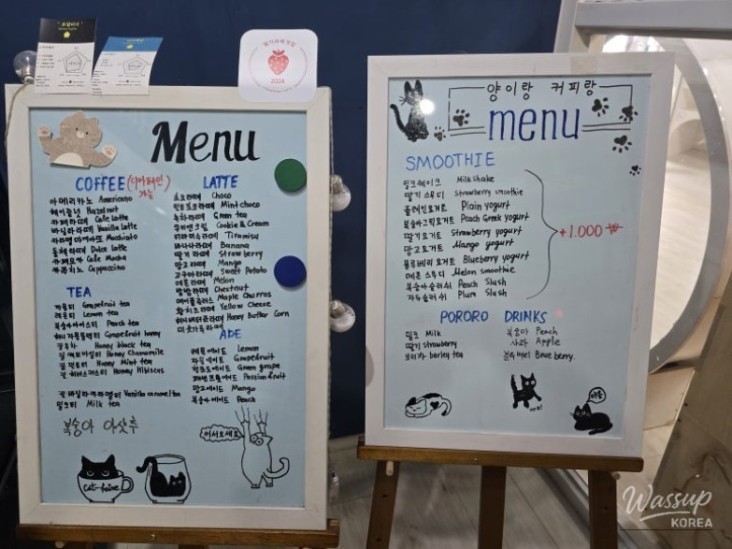 Menu
COFFEE (디카페인 가능)
아메리카노 Americano
헤이즐넛 Hazelnut
카페라떼 Cafe Latte
바닐라라떼 Vanilla Latte
카라멜 마끼아또 Macchiato
돌체라떼 Dolce Latte
카페모카 Cafe Mocha
카푸치노 Cappuccino
TEA
자몽티 Grapefruit tea
레몬티 Lemon tea
복숭아아이스티 Peach tea
허니자몽블랙티 Grapefruit honey
Honey black tea
Honey Chamomile
Honey Mint tea
Honey Hibiscus
Vanilla caramel tea
밀크티 Milk tea
복숭아 아샷추
cat-feine
LATTE
초코라떼 Choco
민트초코라떼 Mint choco
녹차라떼 Green tea
쿠키앤크림 Cookie & Cream
티라미수라떼 Tiramisu
바나나라떼 Banana
딸기라떼 Strawberry
망고라떼 Mango
고구마라떼 Sweet Potato
메론라떼 Melon
밤라떼 Chestnut
메이플츄러스 Maple Churros
황치즈라떼 Yellow Cheese
허니버터콘라떼 Honey Butter Corn
미숫가루라떼
ADE
레몬에이드 Lemon
자몽에이드 Grapefruit
청포도에이드 Green grape
패션후르츠에이드 Passion fruit
망고에이드 Mango
복숭아에이드 Peach
어서오세요
양이랑 커피랑
menu
SMOOTHIE
밀크쉐이크 Milk shake
딸기스무디 Strawberry smoothie
플레인요거트 Plain yogurt
복숭아그릭요거트 Peach Greek yogurt
딸기요거트 Strawberry yogurt
망고요거트 Mango yogurt
블루베리요거트 Blueberry yogurt
메론스무디 Melon smoothie
복숭아슬러쉬 Peach Slush
자두슬러쉬 Plum Slush
+1.000 ₩
PORORO DRINKS
밀크 Milk
딸기 Strawberry
보리차 barley tea
복숭아 Peach
사과 Apple
블루베리 Blueberry.
Wassup
KOREA